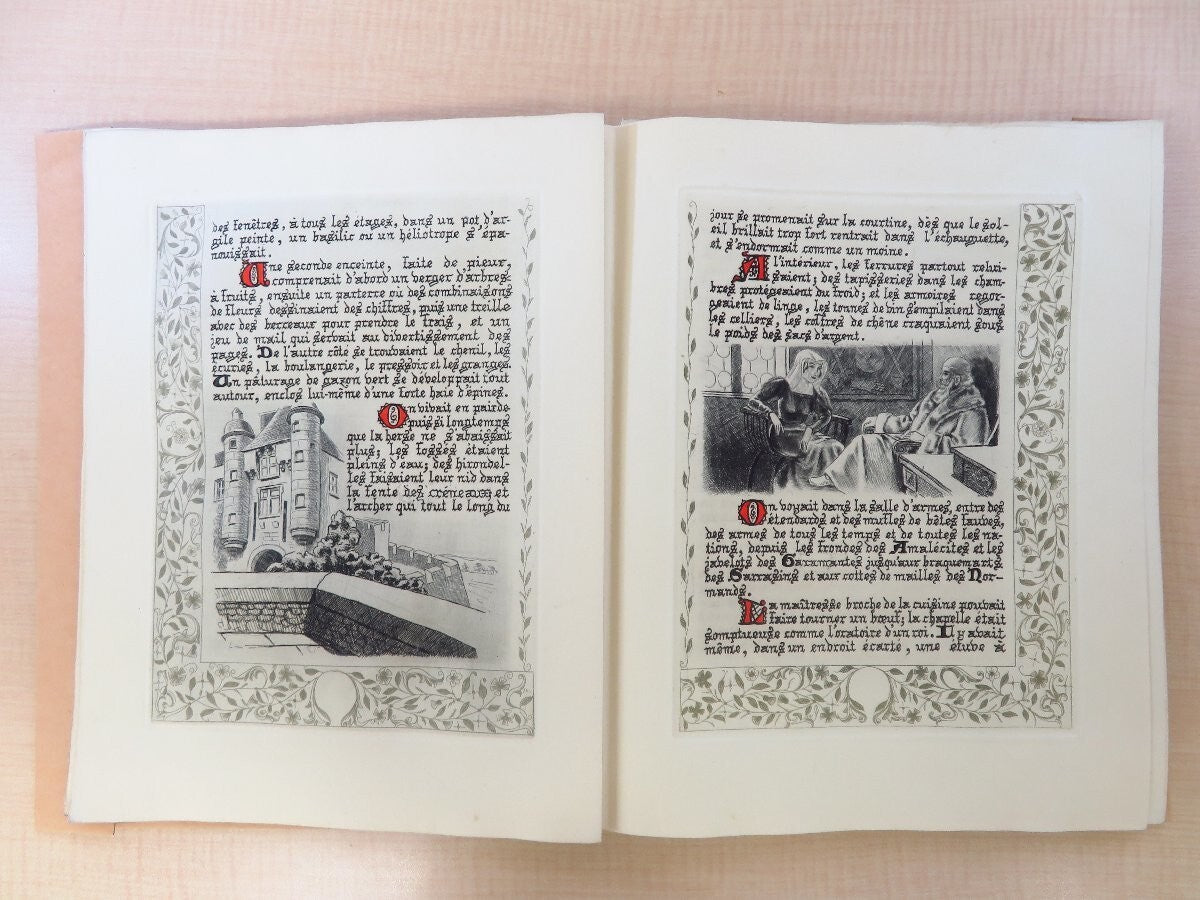 des fenêtres, à tous les étages, dans un pot d'ar-
gile peinte, un basilic ou un héliotrope s'épa-
nouissait.
Une seconde enceinte, faite de pieux,
comprenait d'abord un verger d'arbres
à fruits, ensuite un parterre où des combinaisons
de fleurs dessinaient des chiffres, puis une treille
avec des berceaux pour prendre le frais, et un
jeu de mail qui servait au divertissement des
pages. De l'autre côté se trouvaient le chenil, les
écuries, la boulangerie, le pressoir et les granges.
Un pâturage de gazon vert se développait tout
autour, enclos lui-même d'une forte haie d'épines.
On vivait en paix de
puis si longtemps
que la herse ne s'abaissait
plus; les fossés étaient
pleins d'eau; des hirondel-
les faisaient leur nid dans
la fente des créneaux et
l'archer qui tout le long du
jour se promenait sur la courtine, dès que le sol-
eil brillait trop fort rentrait dans l'échauguette,
et s'endormait comme un moine.
A l'intérieur, les ferrures partout relui-
saient; des tapisseries dans les cham-
bres protégeaient du froid; et les armoires regor-
geaient de linge, les tonnes de vin s'empilaient dans
les celliers, les coffres de chêne craquaient sous
le poids des sacs d'argent.
On voyait dans la salle d'armes, entre des
étendards et des mufles de bêtes fauves,
des armes de tous les temps et de toutes les na-
tions, depuis les frondes des Amalécites et les
javelots des Garamantes jusqu'aux braquemarts
des Sarrasins et aux cottes de mailles des Nor-
mands.
La maîtresse broche de la cuisine pouvait
faire tourner un bœuf; la chapelle était
somptueuse comme l'oratoire d'un roi. Il y avait
même, dans un endroit écarté, une étuve à